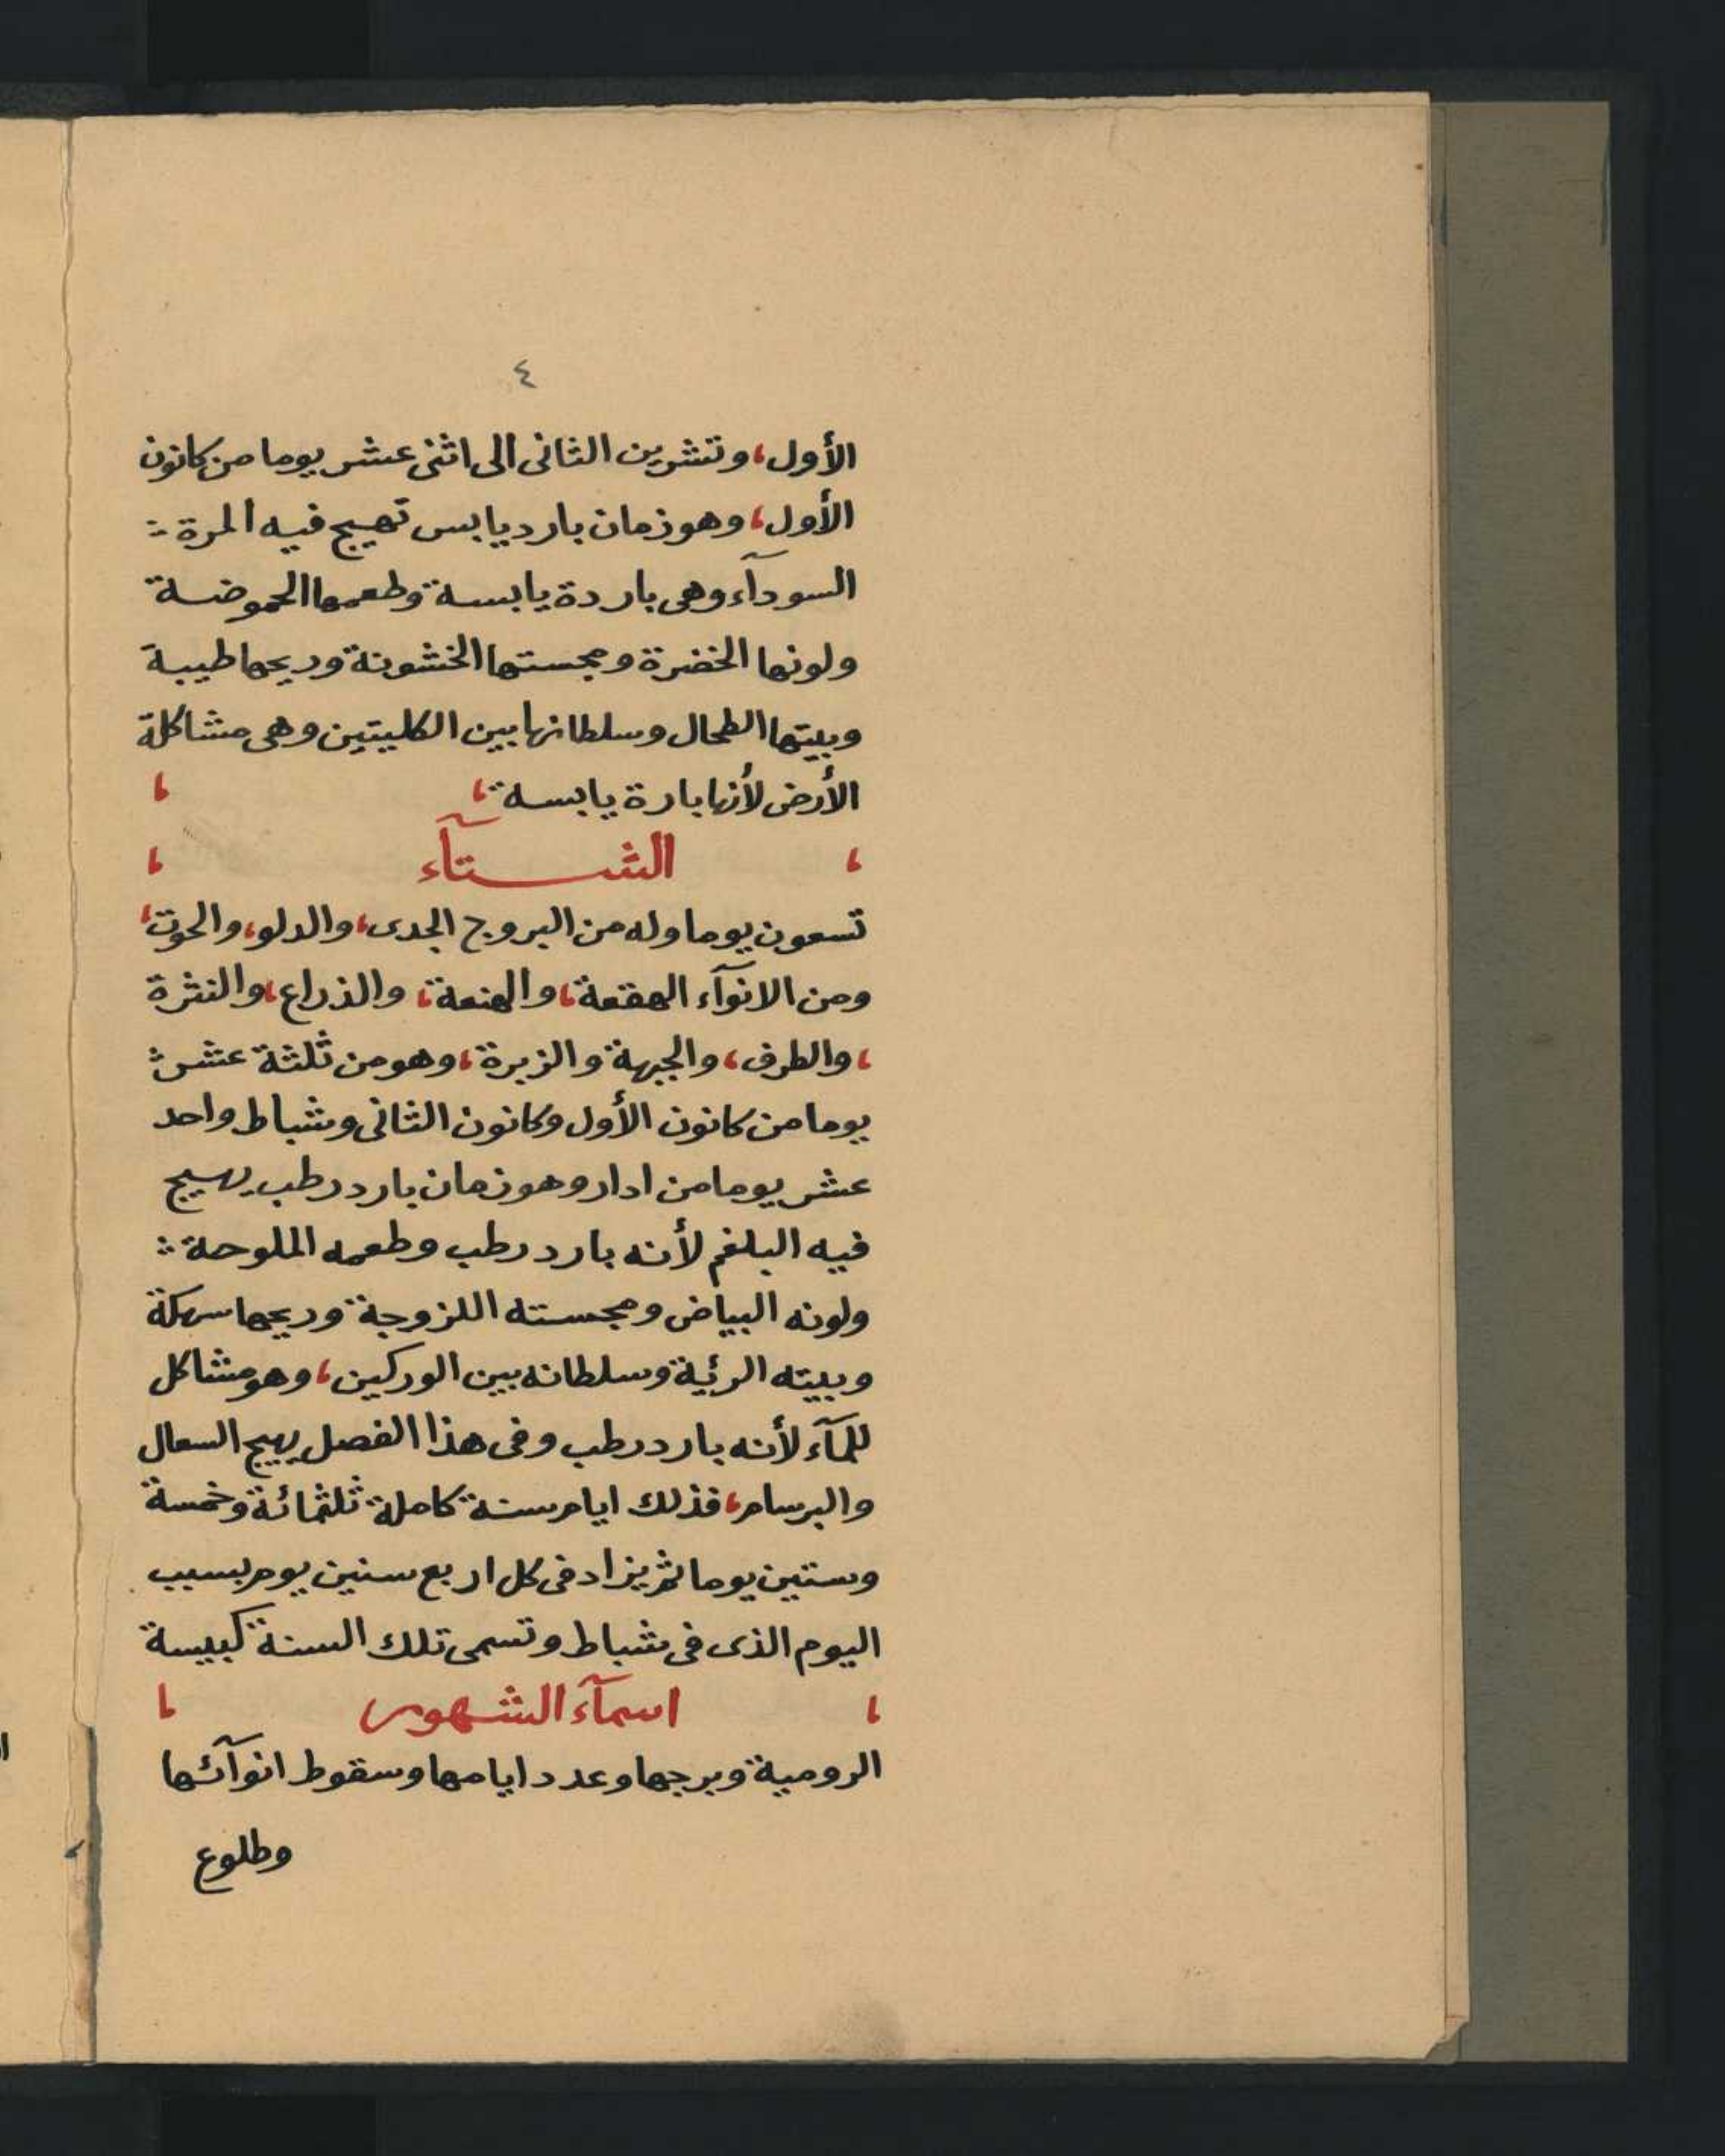 ٤
الأول، وتشرين الثانى الى اثنى عشر يوما من كانون
الأول، وهو زمان بارد يابس تهيج فيه المرة :
السودآء وهى باردة يابسة وطعمها الحموضة
ولونها الخضرة ومجستها الخشونة وريحها طيبة
وبيتها الطحال وسلطانها بين الكليتين وهى مشاكلة
الأرض لأنها بارة يابسة، ،
، الشتآء ،
تسعون يوما وله من البروج الجدى، والدلو، والحوت،
ومن الانوآء الهقعة، والهنعة، والذراع، والنثرة
، والطرف، والجبهة والزبرة، وهو من ثلثة عشر :
يوما من كانون الأول وكانون الثانى وشباط واحد
عشر يوما من ادار وهو زمان بارد رطب يهيج
فيه البلغم لأنه بارد رطب وطعمه الملوحة :
ولونه البياض ومجسته اللزوجة وريحها سهكة
وبيته الرئية وسلطانه بين الوركين، وهو مشاكل
للمآء لأنه بارد رطب وفى هذا الفصل يهيج السعال
والبرسام، فذلك ايام سنة كاملة ثلثمائة وخمسة
وستين يوما ثم يزاد فى كل اربع سنين يوم بسبب
اليوم الذى فى شباط وتسمى تلك السنة كبيسة
، اسمآء الشهور ،
الرومية وبرجها وعدد ايامها وسقوط انوآئها
وطلوع